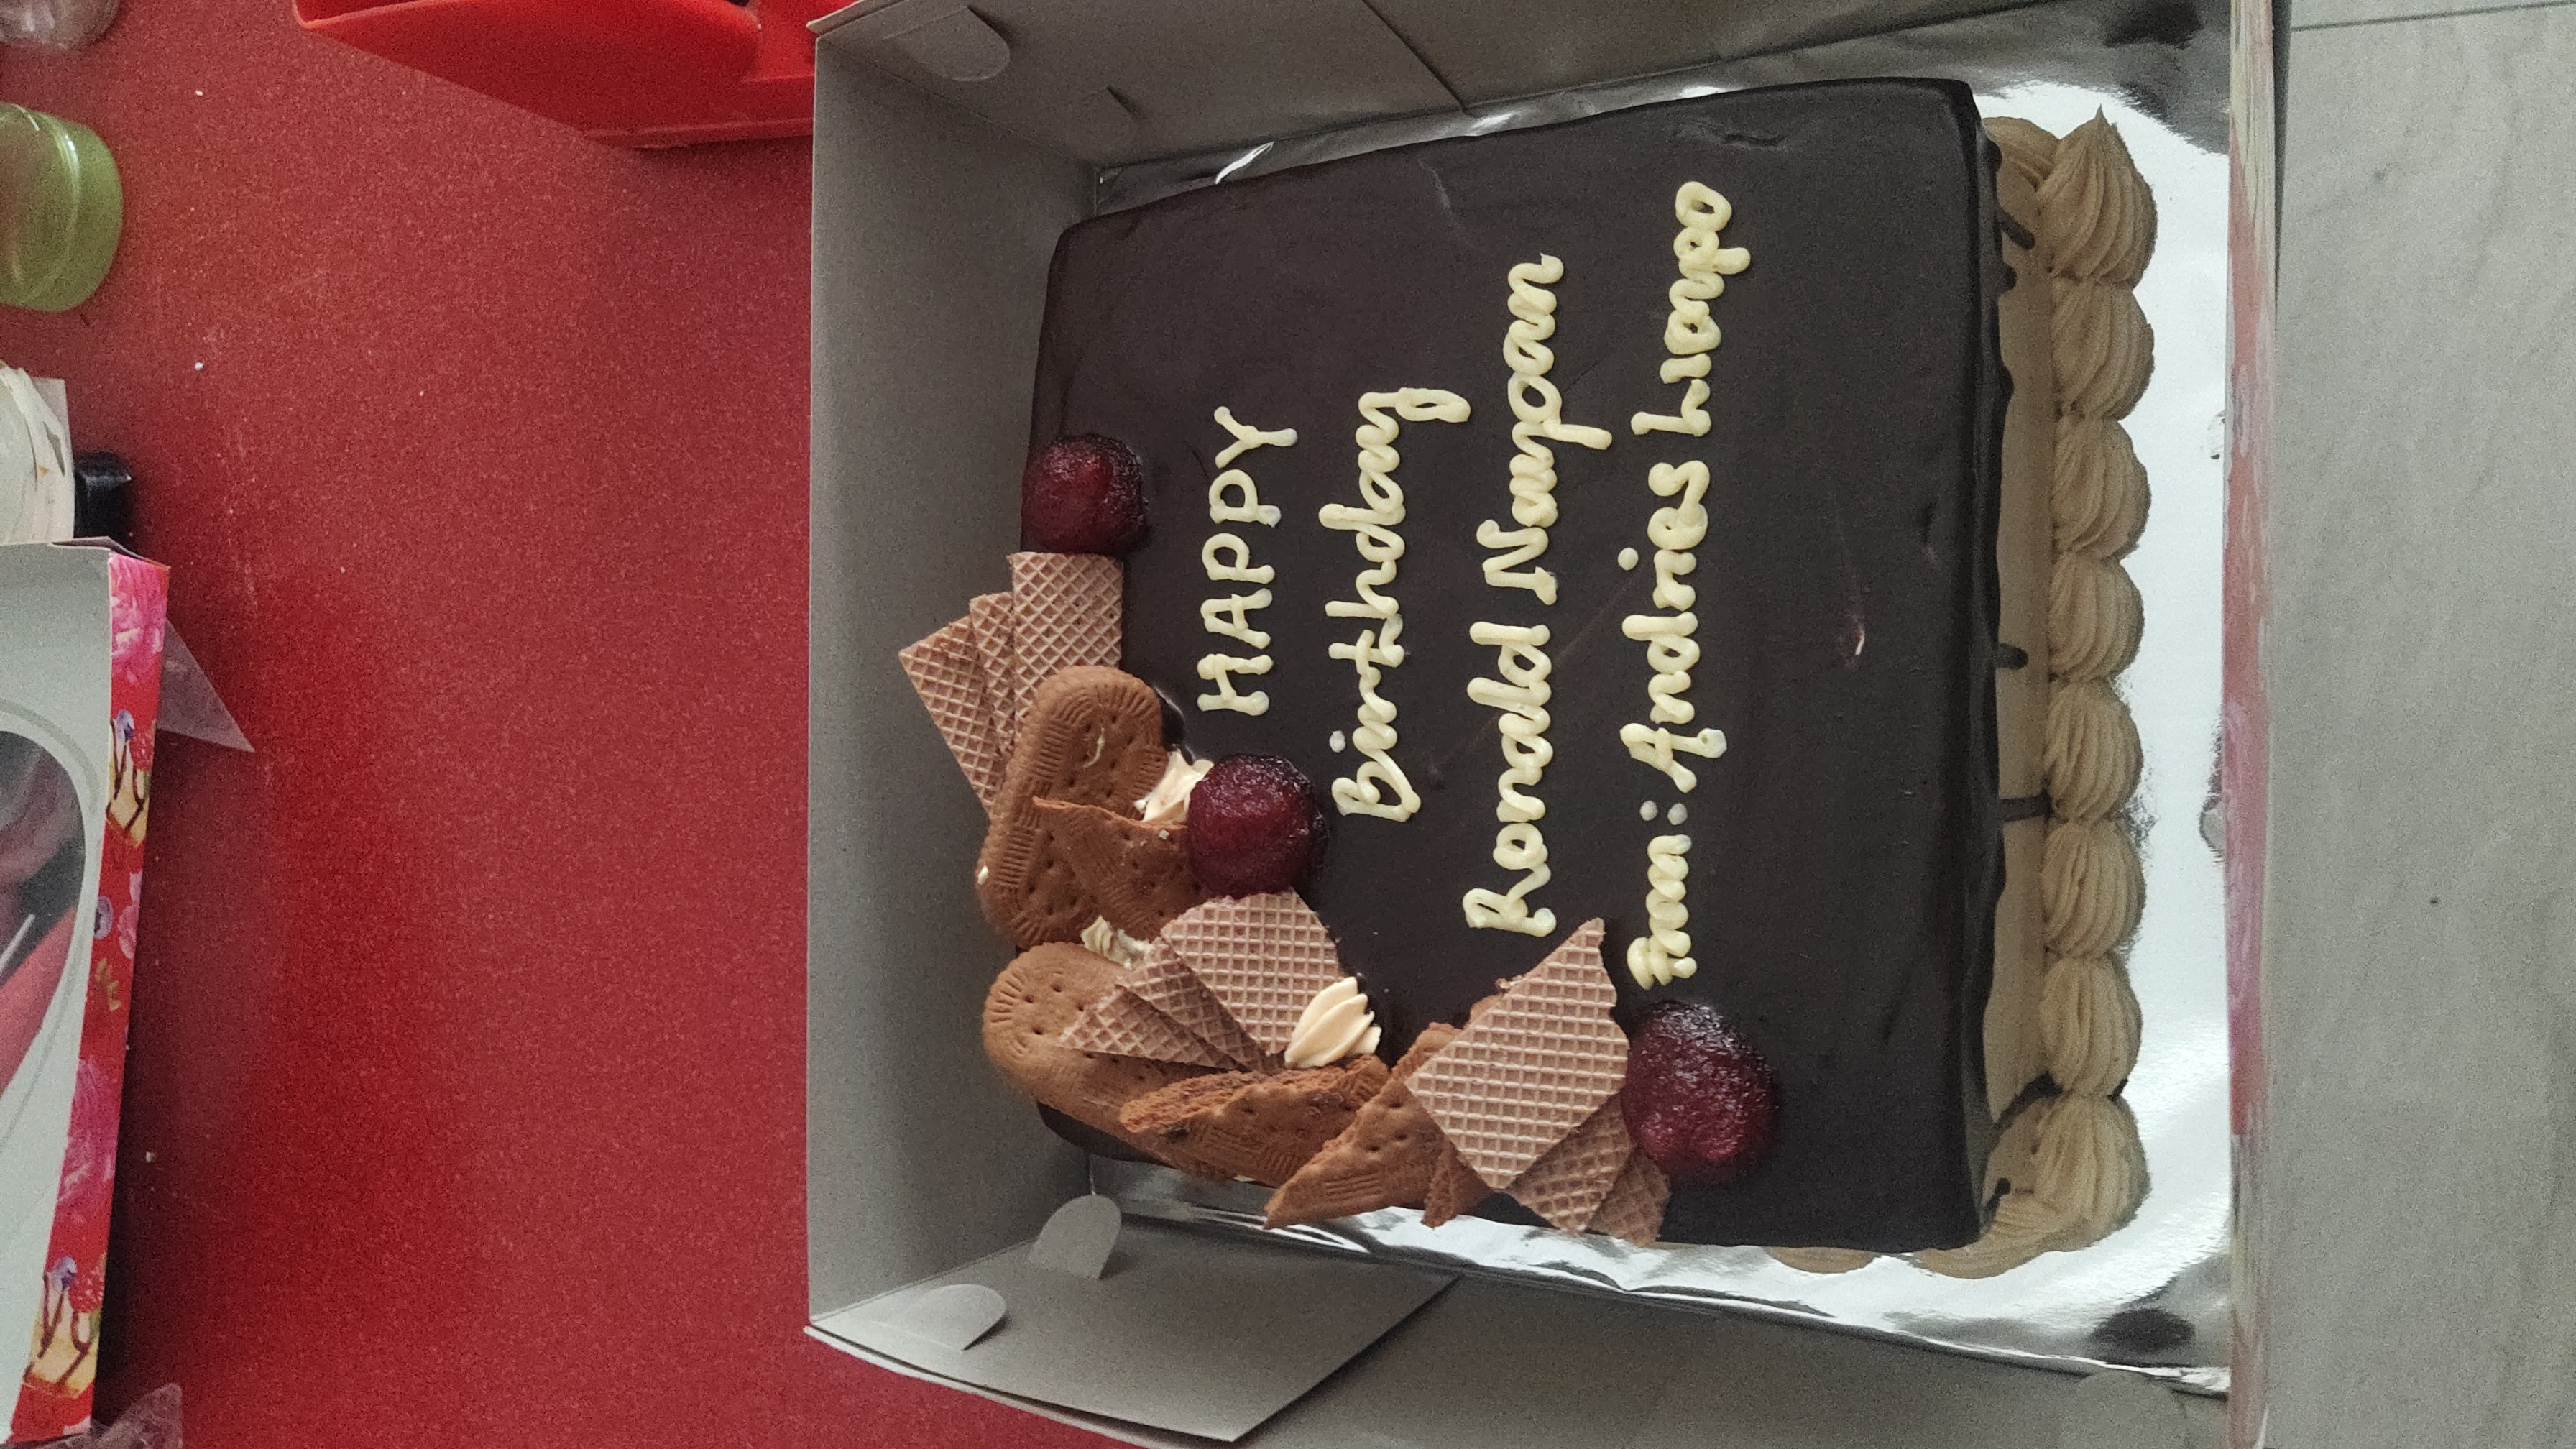 HAPPY
Birthday
Ronald Nayoan
From: Andries Limpo